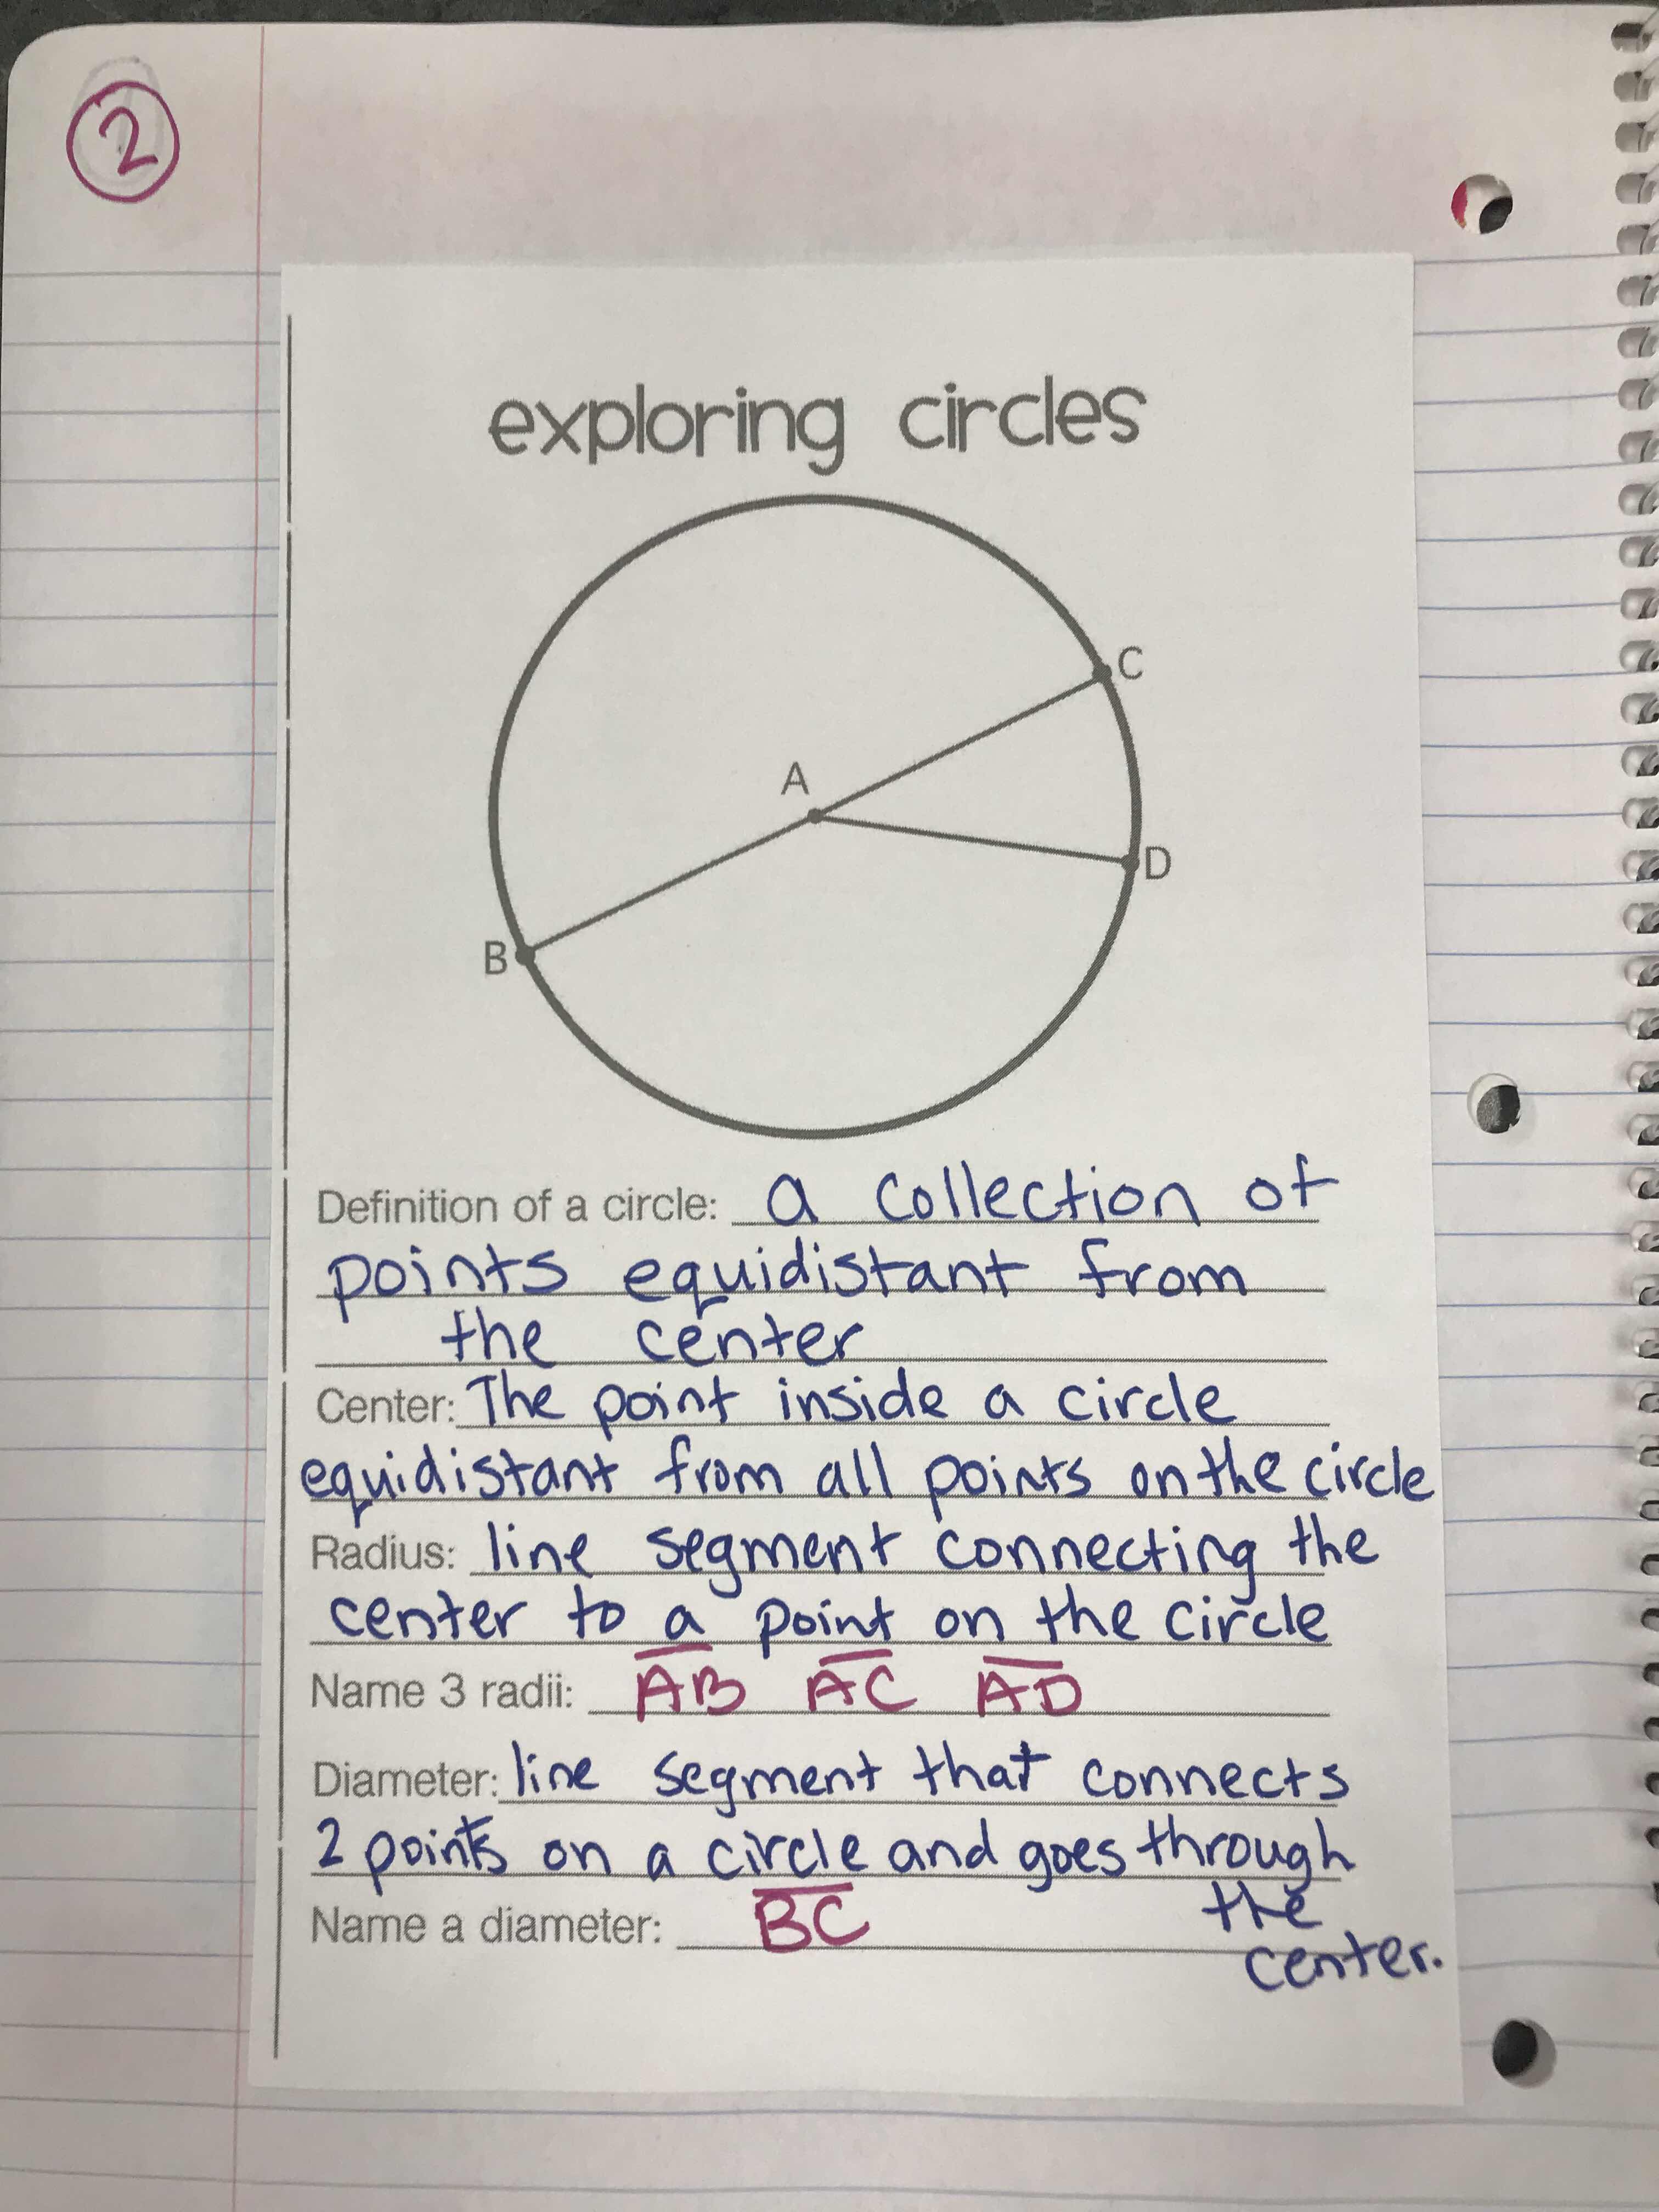 2
exploring circles
C
A
D
B
Definition of a circle: a collection of
points equidistant from
the center
Center: The point inside a circle
equidistant from all points on the circle
Radius: line segment connecting the
center to a point on the circle
Name 3 radii: A̅B̅ A̅C̅ A̅D̅
Diameter: line segment that connects
2 points on a circle and goes through
the
Name a diameter: B̅C̅
center.